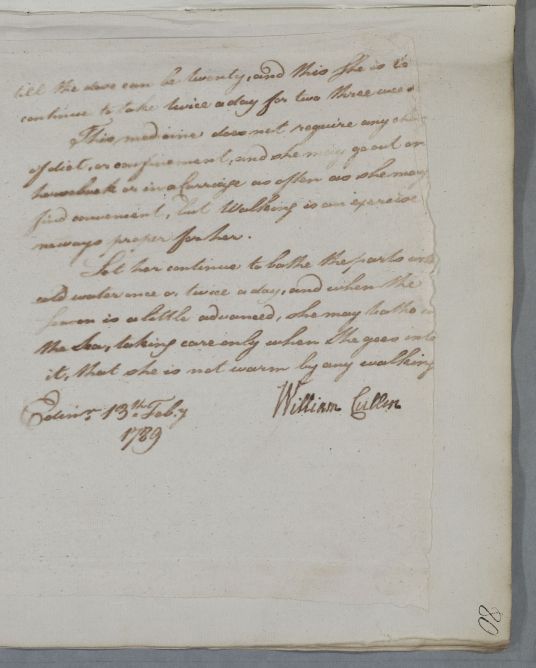 till the dose can be twenty, and this She is to
continue to take twice a day for two three wee
This medicine does not require any cha
of diet, or confinement, and she may go out on
horseback or in a Carriage as often as she may
find convenient, but Walking is an exercise
noways proper for her.
Let her continue to bathe the parts with
cold water once or twice a day, and when the
Season is a little advanced, she may bathe in
the Sea, taking care only when She goes into
it, that she is not warm by any walking
Edinr. 13th. Feb:y
1789
William Cullen
80